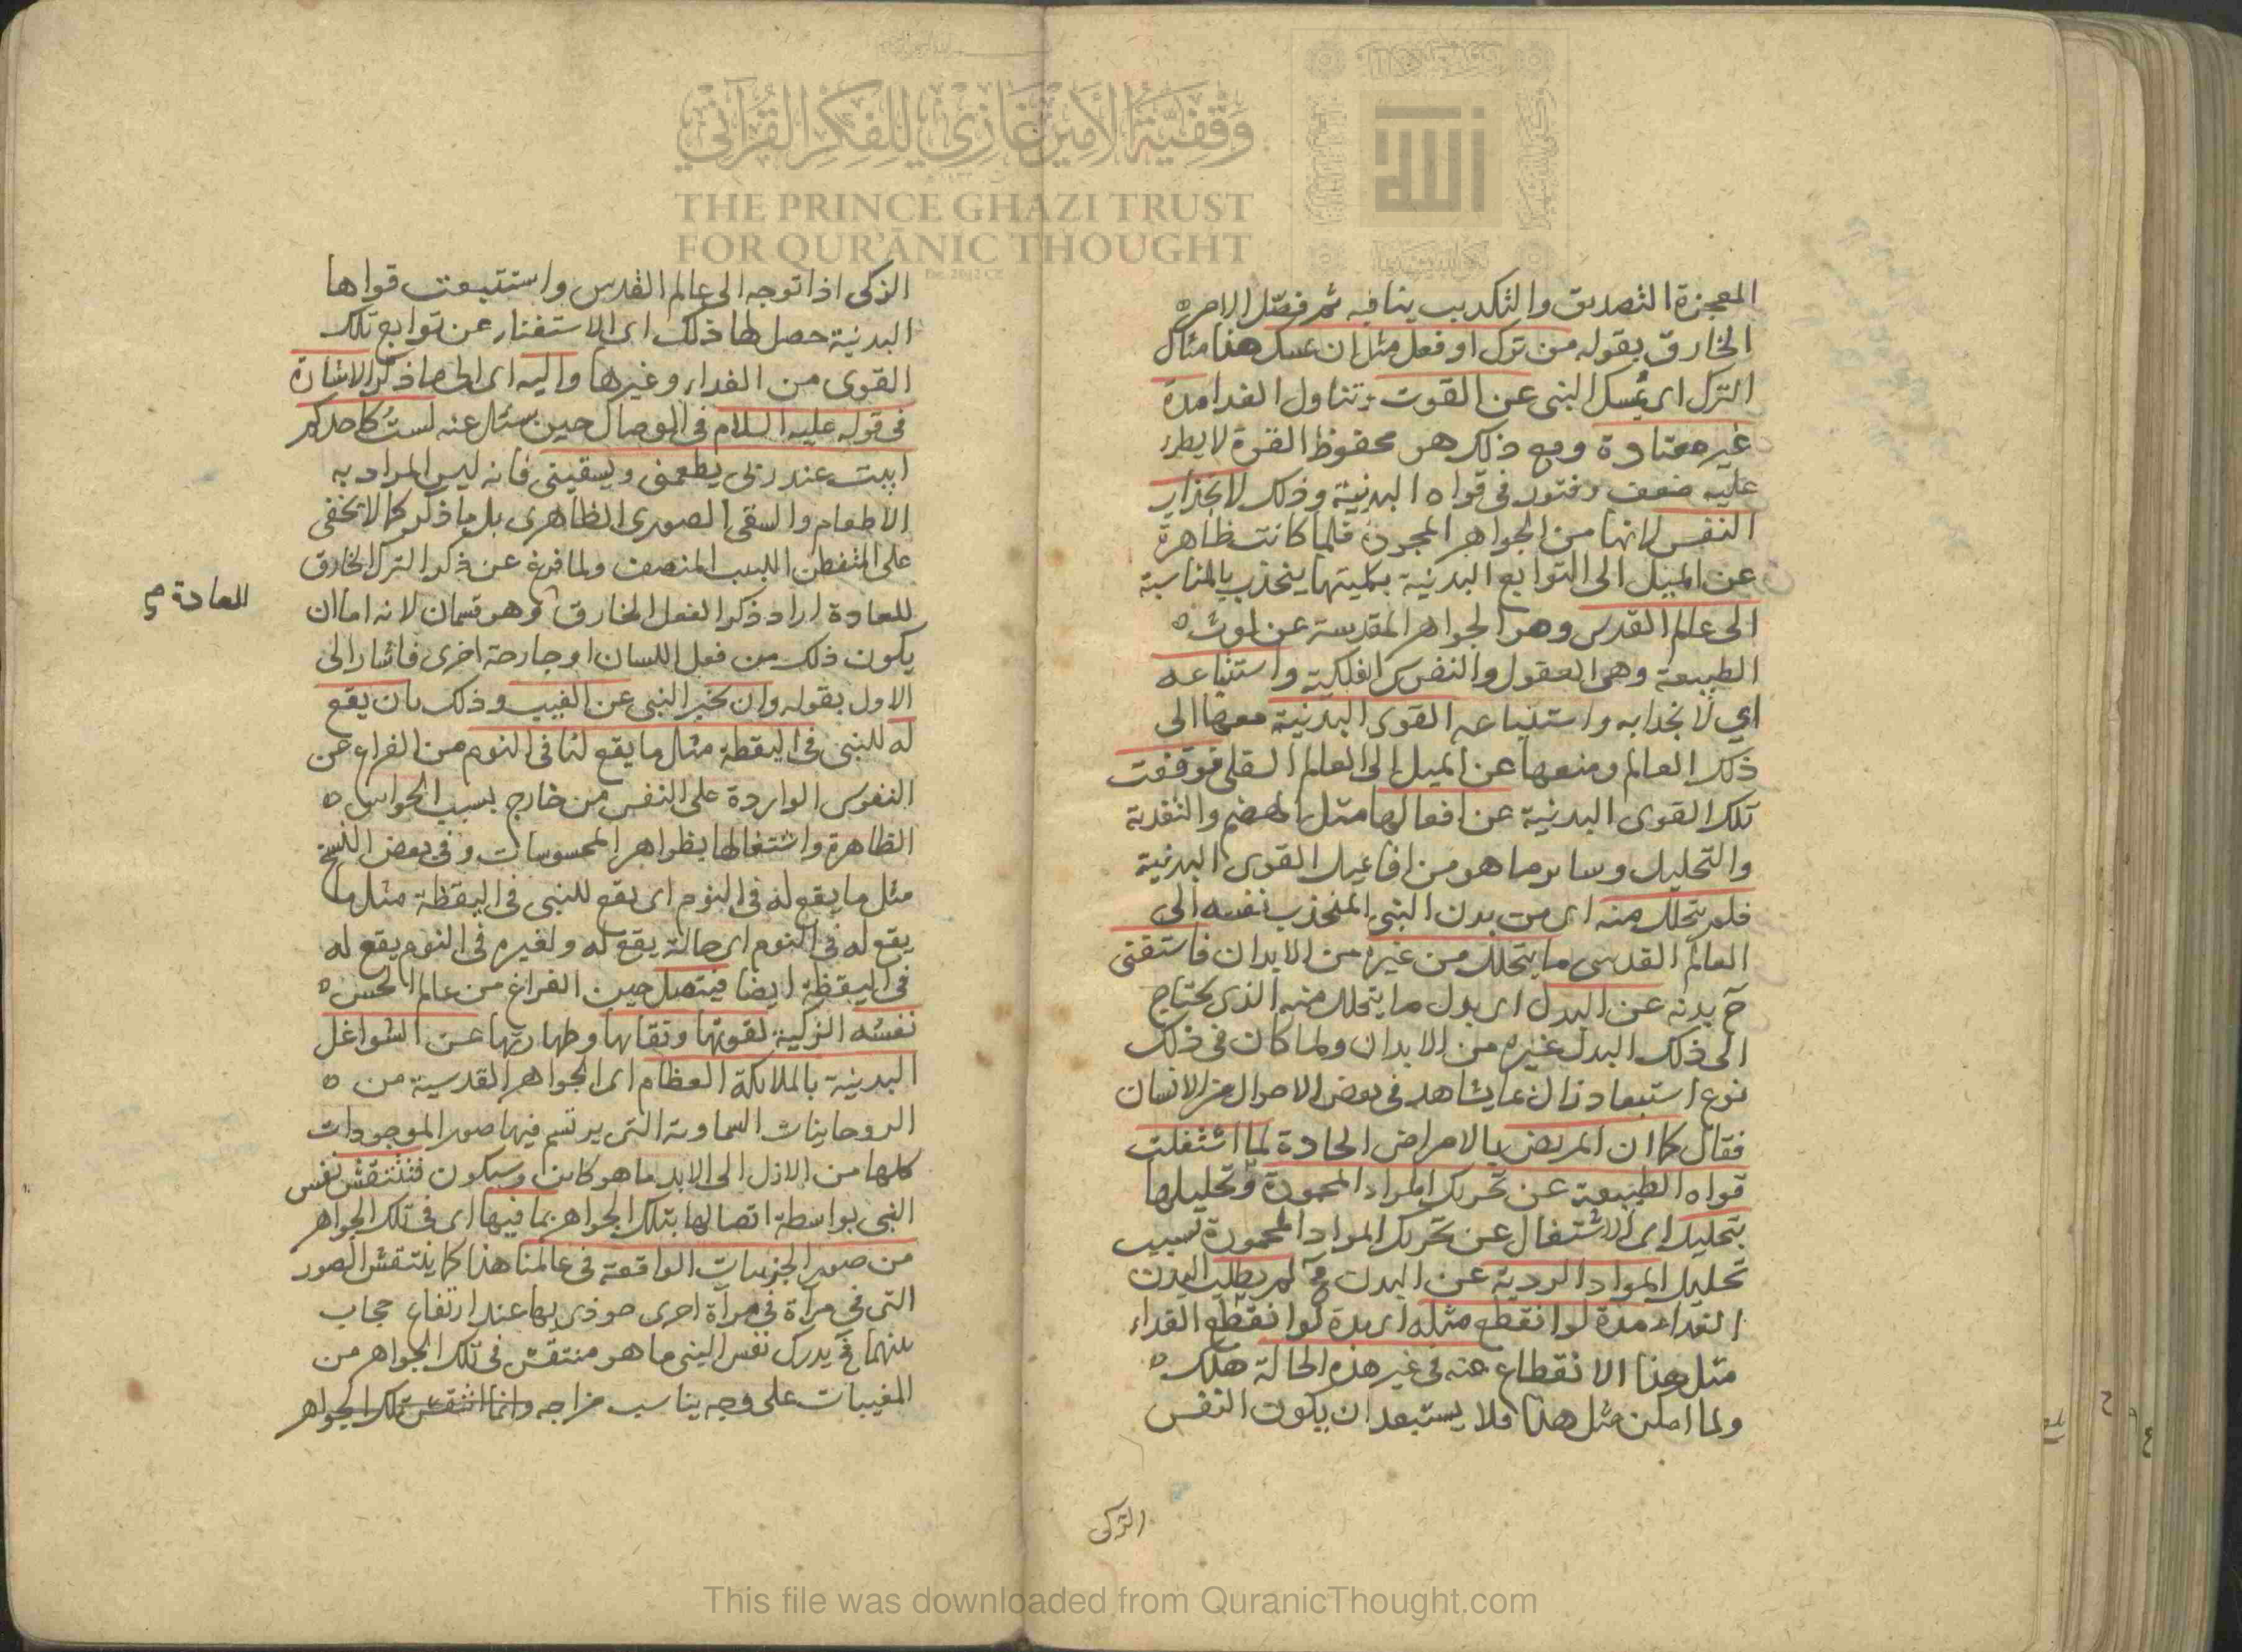 وقفية الأمير غازي للفكر القرآني
THE PRINCE GHAZI TRUST
FOR QUR'ĀNIC THOUGHT
الله
المعجزة التصديق والتكديب ينافيه ثم فصّل الامر
الخارق بقوله من ترك او فعل مثل ان يمسك هذا مثال
الترك اى يُمسك النبى عن القوت وتناول الغدا مدة
غير معتادة ومع ذلك هو محفوظ القوة لا يطرء
عليه ضعف وفتور فى قواه البدنية وذلك لانجذاب
النفس لانها من الجواهر المجردة فلما كانت ظاهرة
عن الميل الى التوابع البدنية بكليتها ينجذب بالمناسبة
الى عالم القدس وهو الجواهر المقدسة عن لوث
الطبيعة وهى العقول والنفوس الفلكية واستتباعه
اي لانجدابه واستتباعه القوى البدنية معها الى
ذلك العالم ومنعها عن الميل الى العالم السفلى فوقفت
تلك القوى البدنية عن افعالها مثل الهضم والتغدية
والتحليل وساىر ما هو من افاعيل القوى البدنية
فلم يتحلل منه اى من بدن النبى المنجذب نفسه الى
العالم القدسى ما يتحلل من غيره من الابدان فاستغنى
ح بدنه عن البدل اى بدل ما يتحلل منه الذى يحتاج
الى ذلك البدل غيره من الابدان ولما كان فى ذلك
نوع استبعاد ازال بما يشاهد فى بعض الاحوال من الانسان
فقال كما ان المريض بالامراض الحادة لما اشتغلت
قواه الطبيعة عن تحريك المواد المحمودة وتحليلها
بتحليل اى الاشتغال عن تحريك المواد المحمودة بسبب
تحليل المواد الردية عن البدن ح لم يطلب البدن
الغداء مدة لو انقطع مثله اى مدة لو انقطع الغداء
مثل هذا الانقطاع عنه فى غير هذه الحالة هلك
ولما امكن مثل هذا فلا يستبعد ان يكون النفس
الزكى
الزكى اذا توجه الى عالم القدس واستتبعت قواها
البدنية حصل لها ذلك اى الاستغناء عن توابع تلك
القوى من الغداء وغيرها واليه اى الى ما ذكر الاشارة
فى قوله عليه السلام فى الوصال حين سئل عنه لستُ كاحدكم
ابيت عند ربى يطعمنى ويسقينى فانه ليس المراد به
الاطعام والسقى الصورى الظاهرى بل ما ذكر كما لا يخفى
على المتفطن اللبيب المنصف ولما فرغ عن ذكر الترك الخارق
للعادة اراد ذكر الفعل الخارق وهو قسمان لانه اما ان
للعادة
يكون ذلك من فعل اللسان او جارحة اخرى فاشار الى
الاول بقوله وان يخبر النبى عن الغيب وذلك بان يقع
له للنبى فى اليقظة مثل ما يقع لنا فى النوم من الفراغ عن
النفوس الواردة على النفس من خارج بسبب الحواس
الظاهرة واشتغالها بظواهر المحسوسات وفى بعض النسخ
مثل ما يقع له فى النوم اى يقع للنبى فى اليقظة مثل ما
يقع له فى النوم اى حالة يقع له ولغيره فى النوم يقع له
فى اليقظة ايضا فيتصل حين الفراغ من عالم الحس
نفسه الزكية لقوتها ونقاىها وطهارتها عن الشواغل
البدنية بالملاىكة العظام اى الجواهر القدسية من
الروحانيات السماوية التى يرتسم فيها صور الموجودات
كلها من الازل الى الابد ما هو كاىن وسيكون فتنتقش نفس
النبى بواسطة اتصالها بتلك الجواهر بما فيها اى فى تلك الجواهر
من صور الجزىيات الواقعة فى عالمنا هذا كما ينتقش الصور
التى فى مرآة فى مرآة اخرى حوذى بها عند ارتفاع حجاب
بينهما ح يدرك نفس النبى ما هو منتقش فى تلك الجواهر من
المغيبات على وجه يناسب مزاجه وانما انتقش تلك الجواهر
This file was downloaded from QuranicThought.com